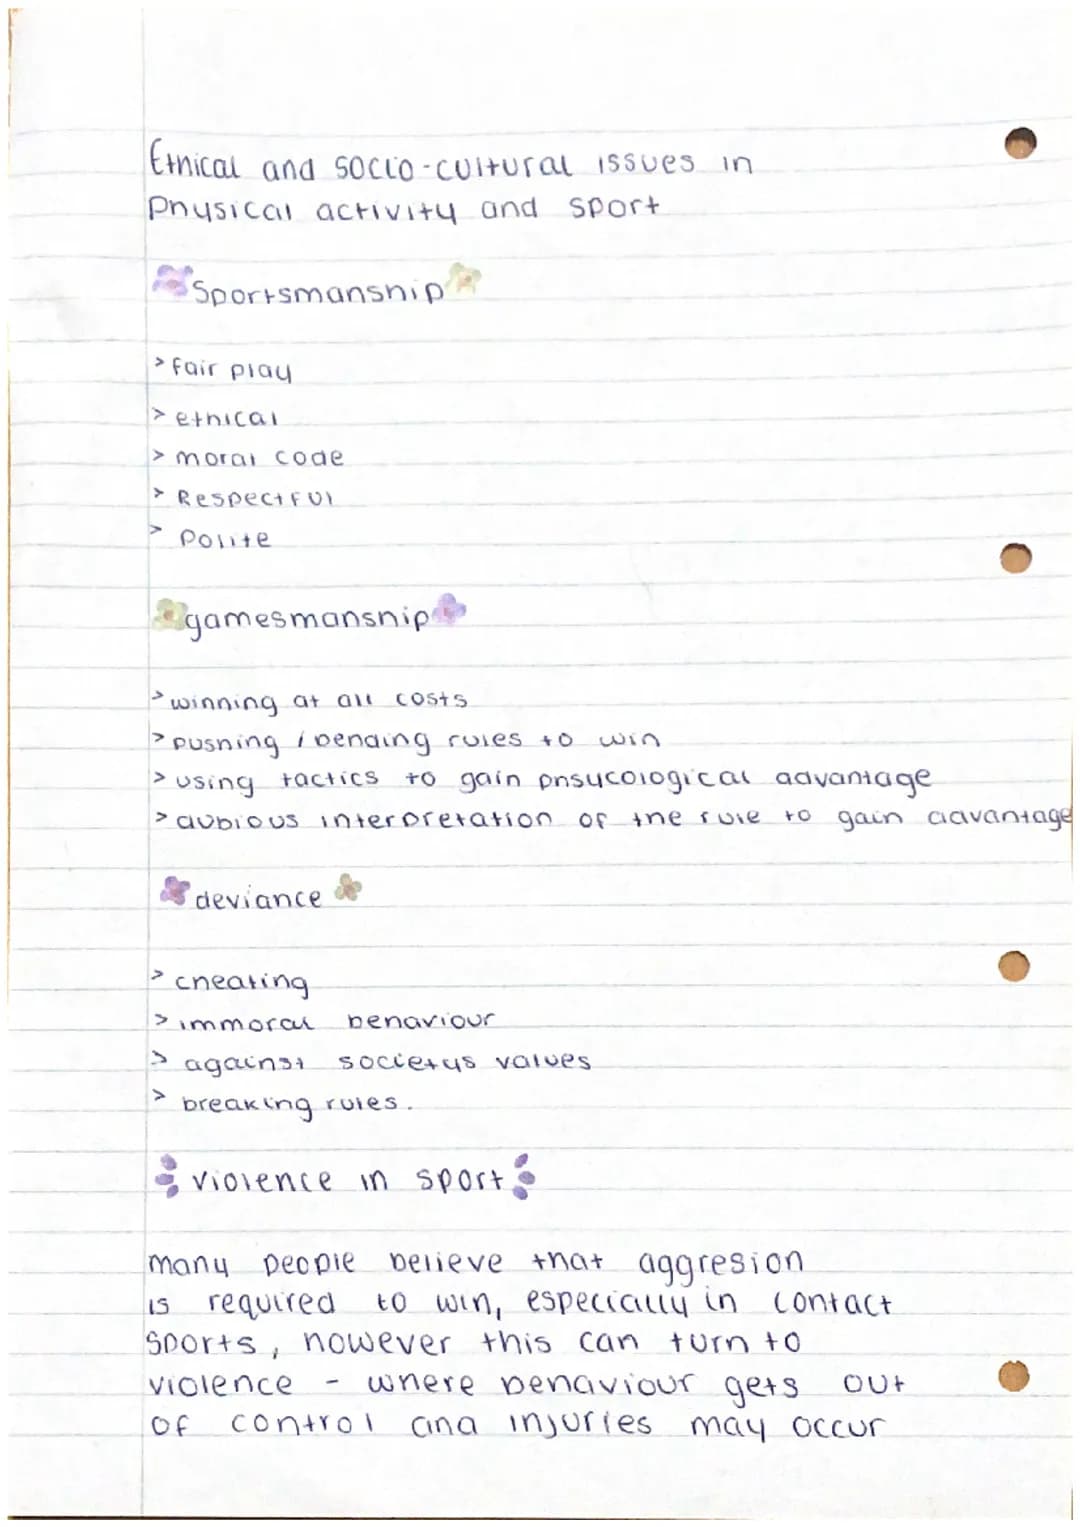 Ethical and socio-cultural issues in
Physical activity and sport
Sportsmanship
> fair play
> ethical
> moral code
> Respectful
> Polite
gamesmanship
> winning at all costs
> pushing / bending rules to win
> using tactics to gain phsycological advantage
> dubious interpretation of the rule to gain advantage
deviance
> cheating
> immoral behaviour
> against societys values
> breaking rules.
violence in sport
many people believe that aggresion
is required to win, especially in contact
sports, however this can turn to
violence - where behaviour gets out
of control and injuries may occur